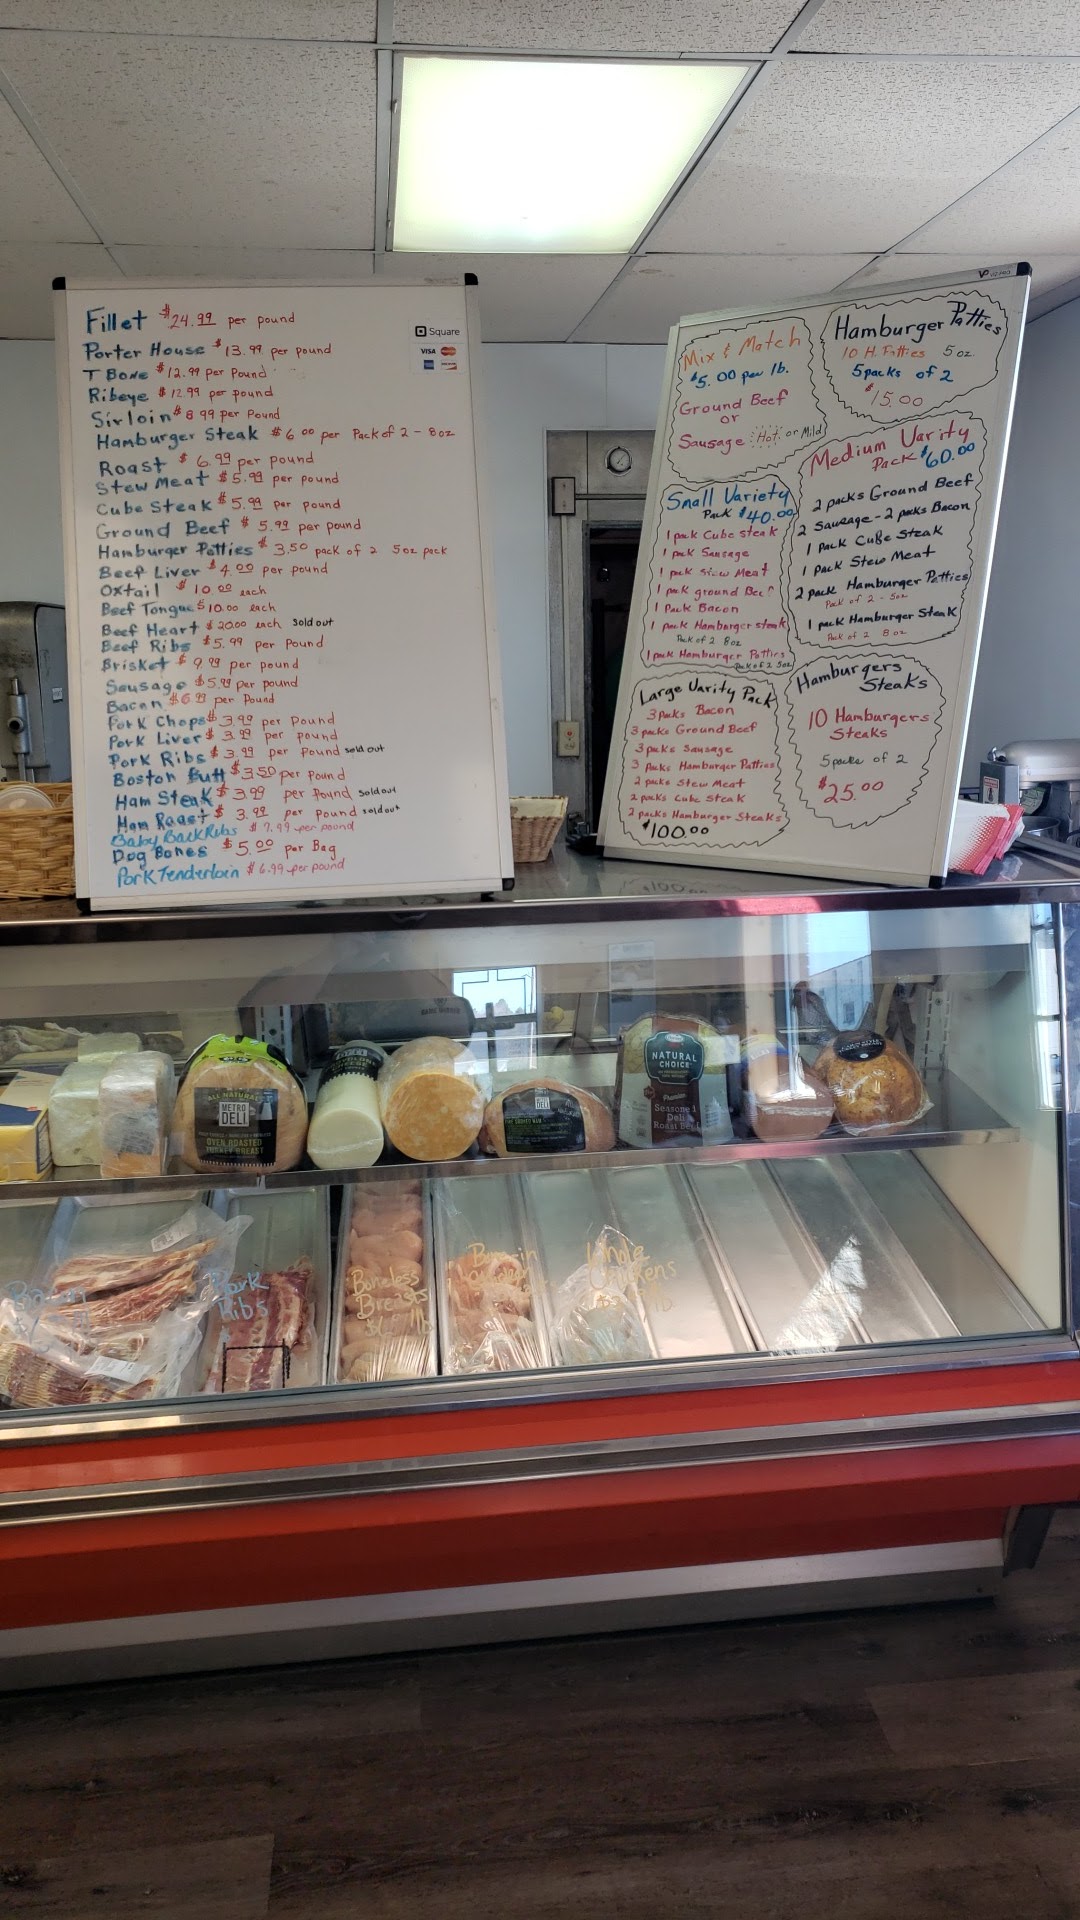 Fillet $24.99 per pound
Porter House $13.99 per pound
T Bone $12.99 per Pound
Ribeye $12.99 per pound
Sirloin $8.99 per Pound
Hamburger Steak $6.00 per Pack of 2 - 8oz
Roast $6.99 per pound
Stew Meat $5.99 per pound
Cube Steak $5.99 per pound
Ground Beef $5.99 per pound
Hamburger Patties $3.50 pack of 2 5oz pack
Beef Liver $4.00 per pound
Oxtail $10.00 each
Beef Tongue $10.00 each
Beef Heart $20.00 each Sold out
Beef Ribs $5.99 per Pound
Brisket $9.99 per pound
Sausage $5.99 per pound
Bacon $6.99 per Pound
Pork Chops $3.99 per Pound
Pork Liver $3.99 per pound
Pork Ribs $3.99 per Pound sold out
Boston Butt $3.50 per Pound
Ham Steak $3.99 per Pound Sold out
Ham Roast $3.99 per Pound sold out
Baby Back Ribs $7.99 per pound
Dog Bones $5.00 per Bag
Pork Tenderloin $6.99 per pound
Square
VISA
Mix & Match
$5.00 per lb.
Ground Beef
or
Sausage Hot or Mild
Hamburger Patties
10 H. Patties 5oz.
5packs of 2
$15.00
Small Variety
Pack $40.00
1 pack Cube Steak
1 pack Sausage
1 pack Stew Meat
1 pack ground Beef
1 Pack Bacon
1 pack Hamburger steak
Pack of 2 8oz
1 pack Hamburger Patties
Pack of 2 5oz
Medium Varity
Pack $60.00
2 packs Ground Beef
2 Sausage - 2 packs Bacon
1 pack Cube Steak
1 pack Stew Meat
2 pack Hamburger Patties
Pack of 2 - 5oz
1 pack Hamburger Steak
Pack of 2 8oz
Large Varity Pack
3 Packs Bacon
3 packs Ground Beef
3 packs Sausage
3 Packs Hamburger Patties
2 packs Stew Meat
2 packs Cube Steak
2 packs Hamburger Steaks
$100.00
Hamburgers
Steaks
10 Hamburgers
Steaks
5packs of 2
$25.00
ALL NATURAL
METRO
DELI
OVEN ROASTED
TURKEY BREAST
DELI
NATURAL
CHOICE
Premium
Seasoned
Deli
Roast Beef
Pork
Ribs
Boneless
Breasts
Whole
Chickens